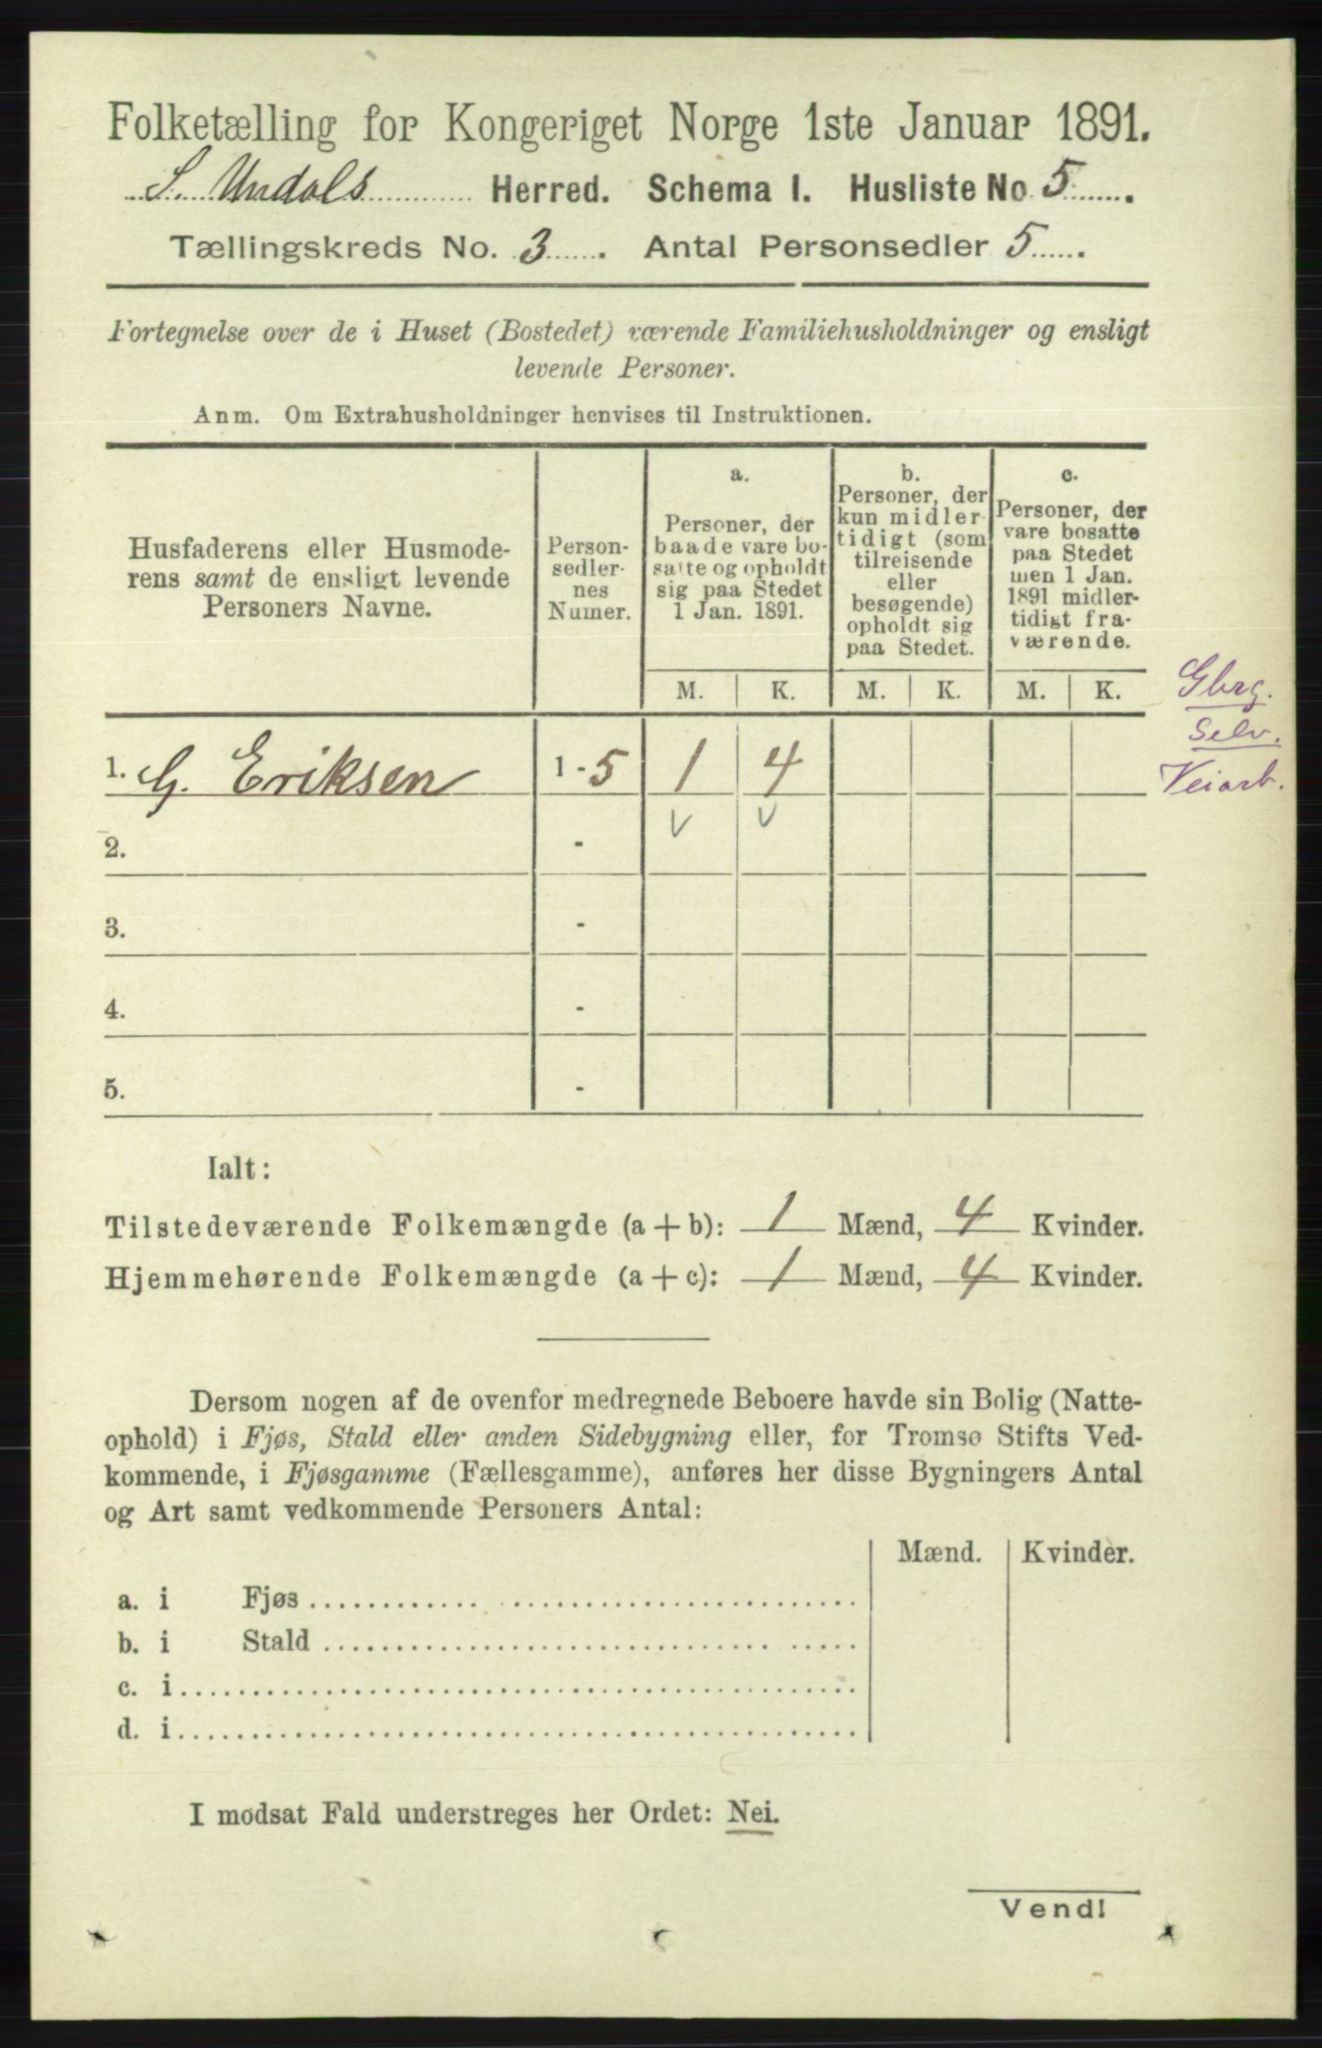 Folketælling for Kongeriget Norge 1ste Januar 1891.
S. Undals Herred. Schema I. Husliste No 5
Tællingskreds No. 3. Antal Personsedler 5.
Fortegnelse over de i Huset (Bostedet) værende Familiehusholdninger og ensligt
levende Personer.
Anm. Om Extrahusholdninger henvises til Instruktionen.
Husfaderens eller Husmode-
rens samt de ensligt levende
Personers Navne.
Person-
sedler-
nes
Numer.
a.
Personer, der
baade vare bo-
satte og opholdt
sig paa Stedet
1 Jan. 1891.
b.
Personer, der
kun midler-
tidigt (som
tilreisende
eller
besøgende)
opholdt sig
paa Stedet.
c.
Personer, der
vare bosatte
paa Stedet
men 1 Jan.
1891 midler-
tidigt fra-
værende.
M. K. M. K. M. K.
Gbrg.
Selv.
Veiarb.
1. G. Eriksen 1 - 5 1 4
v v
2. -
3. -
4. -
5. -
Ialt:
Tilstedeværende Folkemængde (a + b): 1 Mænd, 4 Kvinder.
Hjemmehørende Folkemængde (a + c): 1 Mænd, 4 Kvinder.
Dersom nogen af de ovenfor medregnede Beboere havde sin Bolig (Natte-
ophold) i Fjøs, Stald eller anden Sidebygning eller, for Tromsø Stifts Ved-
kommende, i Fjøsgamme (Fællesgamme), anføres her disse Bygningers Antal
og Art samt vedkommende Personers Antal:
Mænd. Kvinder.
a. i Fjøs
b. i Stald
c. i
d. i
I modsat Fald understreges her Ordet: Nei.
Vend!